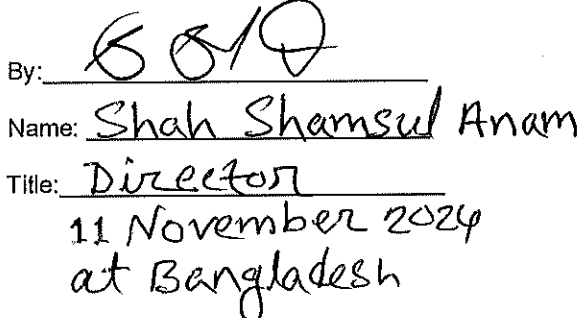 By:
Name: Shah Shamsul Anam
Title: Director
11 November 2024
at Bangladesh